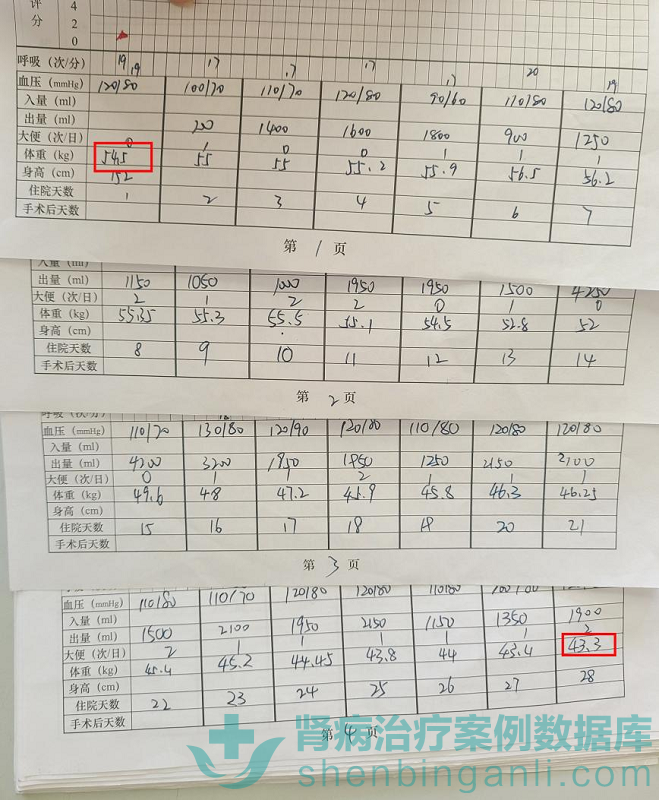 评 4
分 2
0
呼吸（次/分） 19 19 17 17 17 17 20 19
血压（mmHg） 120/80 100/70 110/70 120/80 90/60 110/80 120/80
入量（ml）
出量（ml） 200 1400 1600 1800 900 1250
大便（次/日） 0 1 0 0 1 1 1
体重（kg） 54.5 55 55 55.2 55.9 56.5 56.2
身高（cm） 152
住院天数 1 2 3 4 5 6 7
手术后天数
第 1 页
出量（ml） 1150 1050 1000 1950 1950 1500 4250
大便（次/日） 2 1 2 2 0 1 0
体重（kg） 55.35 55.3 55.5 55.1 54.5 52.8 52
身高（cm）
住院天数 8 9 10 11 12 13 14
手术后天数
第 2 页
呼吸（次/分）
血压（mmHg） 110/70 130/80 120/90 120/80 110/80 120/80 120/80
入量（ml）
出量（ml） 4200 3200 1850 1850 1250 2150 2100
大便（次/日） 0 1 1 2 1 1 1
体重（kg） 49.6 48 47.2 45.9 45.8 46.3 46.25
身高（cm）
住院天数 15 16 17 18 19 20 21
手术后天数
第 3 页
血压（mmHg） 110/80 110/70 120/80 120/80 110/80
入量（ml）
出量（ml） 1500 2100 1950 2150 1150 1350 1900
大便（次/日） 2 1 1 1 1 1 2
体重（kg） 45.4 45.2 44.45 43.8 44 43.4 43.3
身高（cm）
住院天数 22 23 24 25 26 27 28
手术后天数
第 4 页
肾病治疗案例数据库
shenbinganli.com